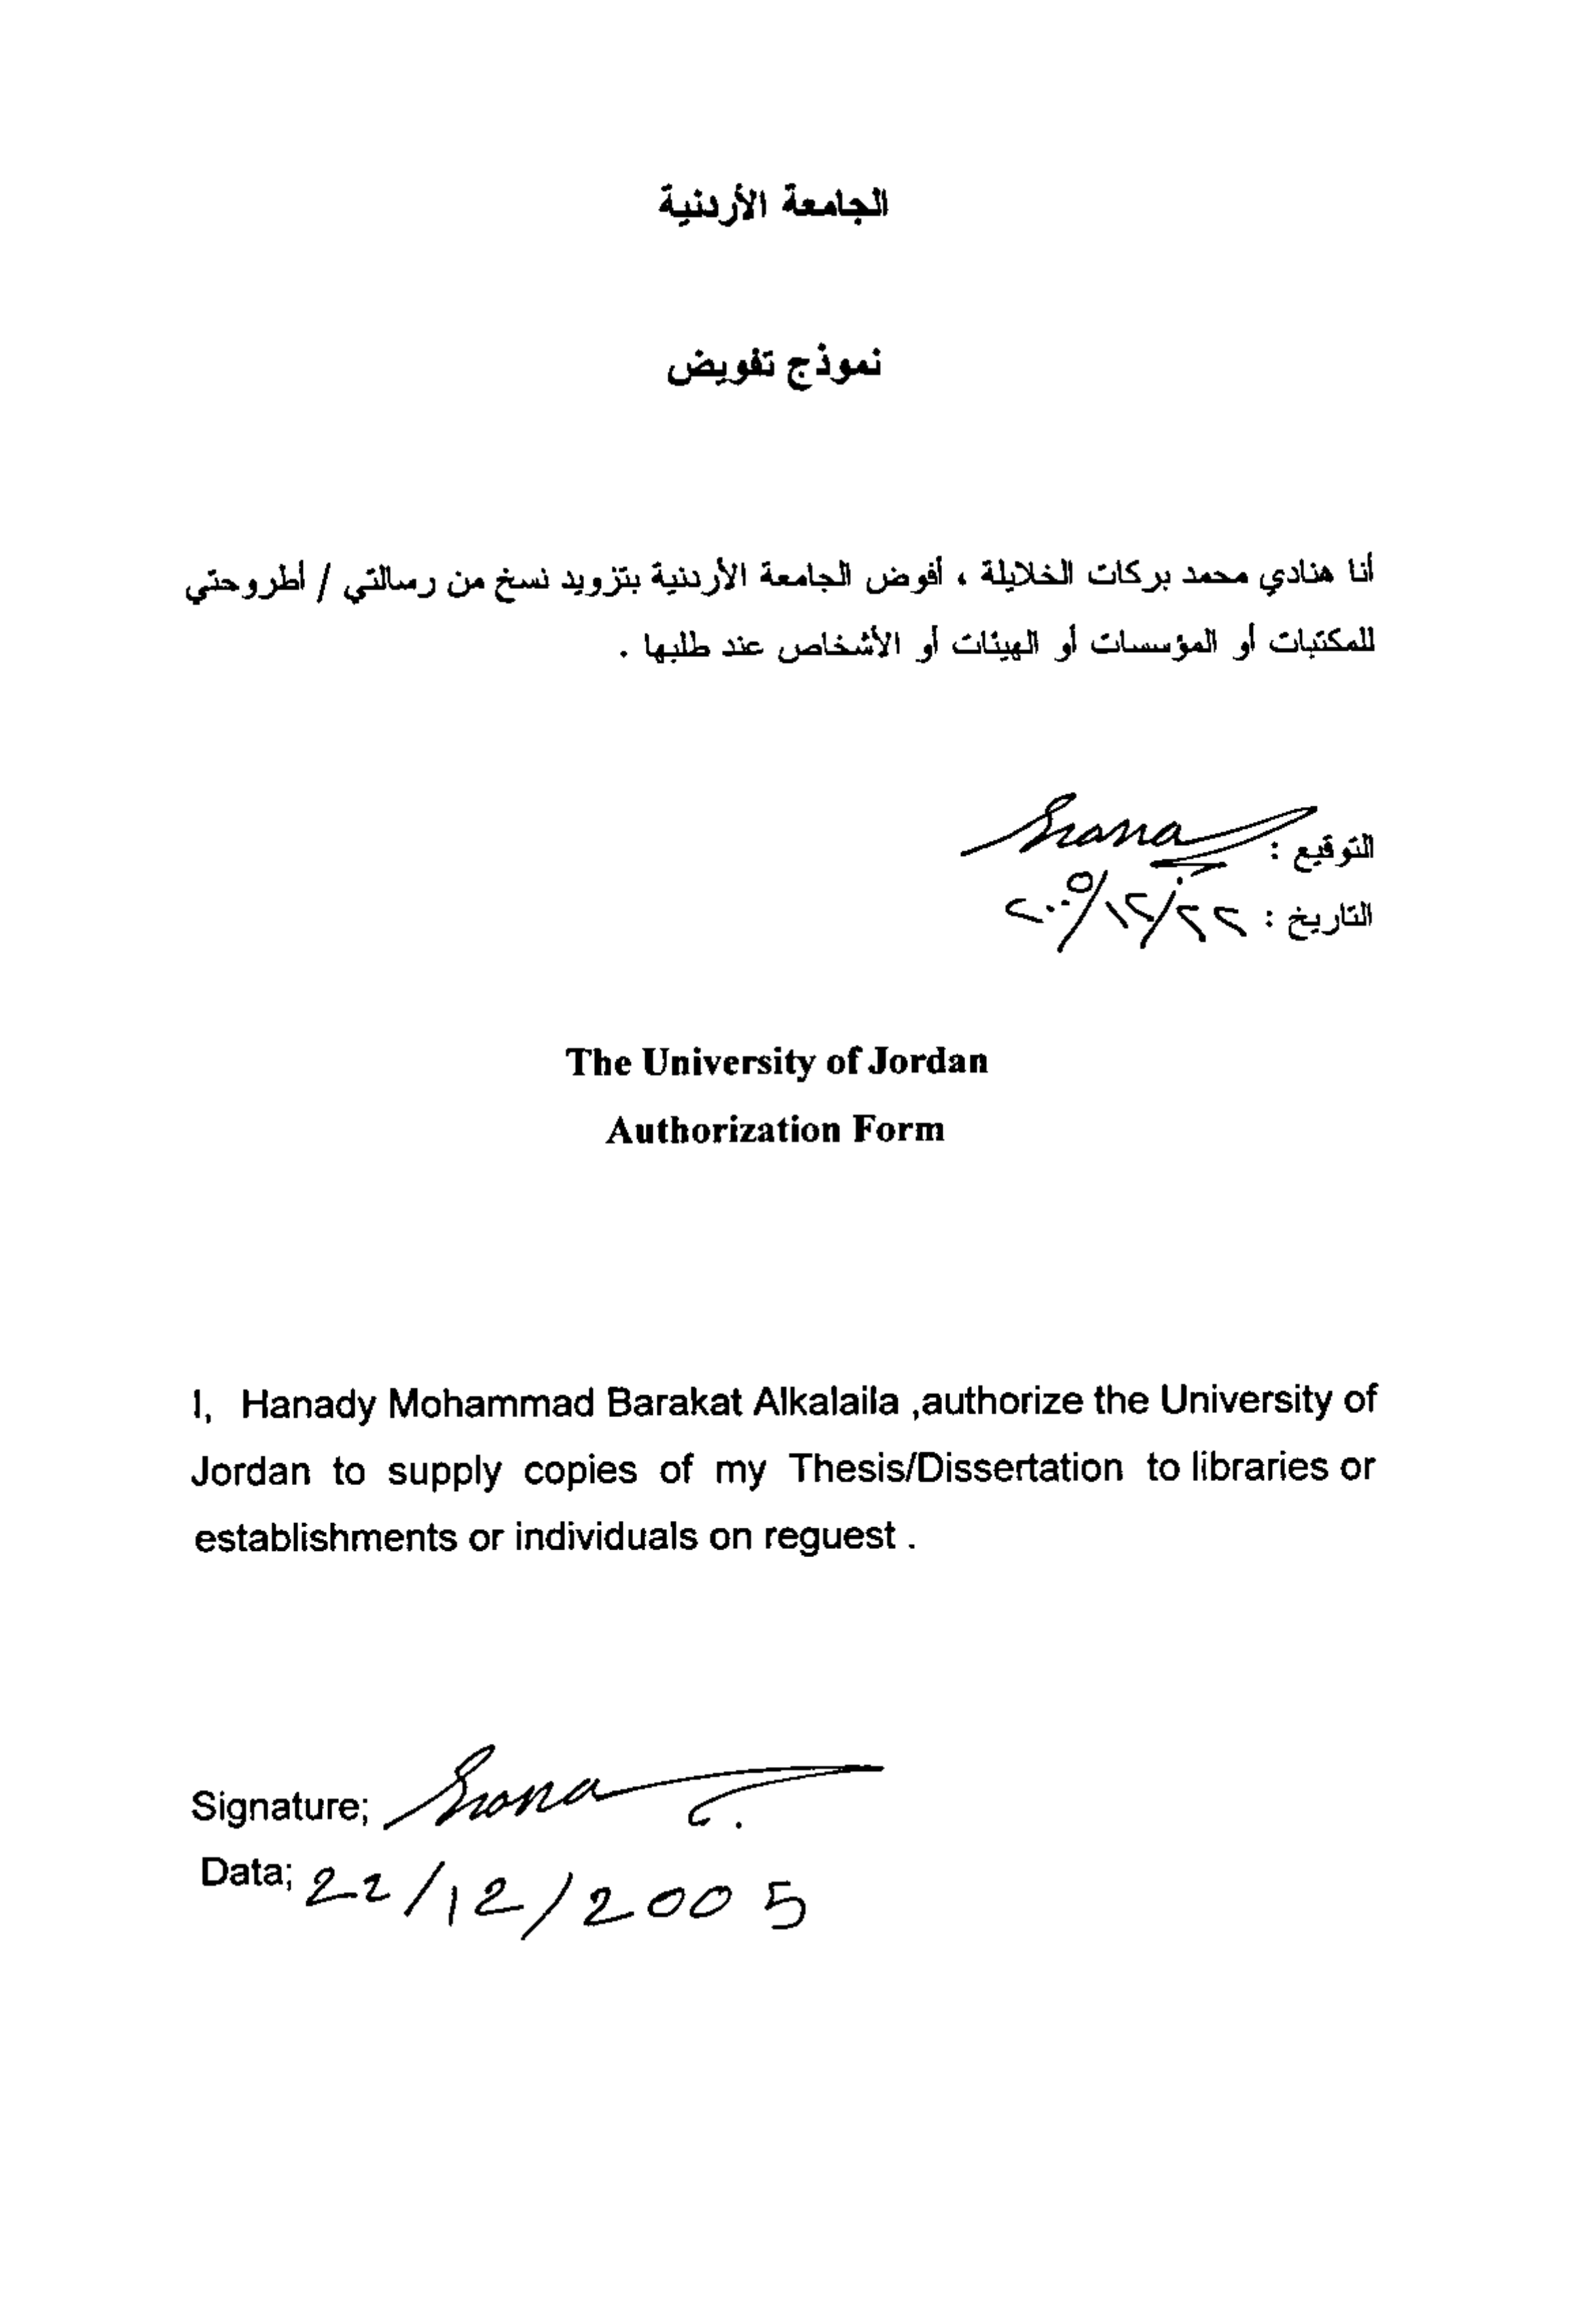 الجامعة الأردنية
نموذج تفويض
أنا هنادي محمد بركات الخلايلة ، أفوض الجامعة الأردنية بتزويد نسخ من رسالتي / أطروحتي
للمكتبات أو المؤسسات أو الهيئات أو الأشخاص عند طلبها .
التوقيع :
التاريخ : ٢٢/١٢/٢٠٠٥
The University of Jordan
Authorization Form
I, Hanady Mohammad Barakat Alkalaila ,authorize the University of
Jordan to supply copies of my Thesis/Dissertation to libraries or
establishments or individuals on reguest .
Signature;
Data; 22/12/2005